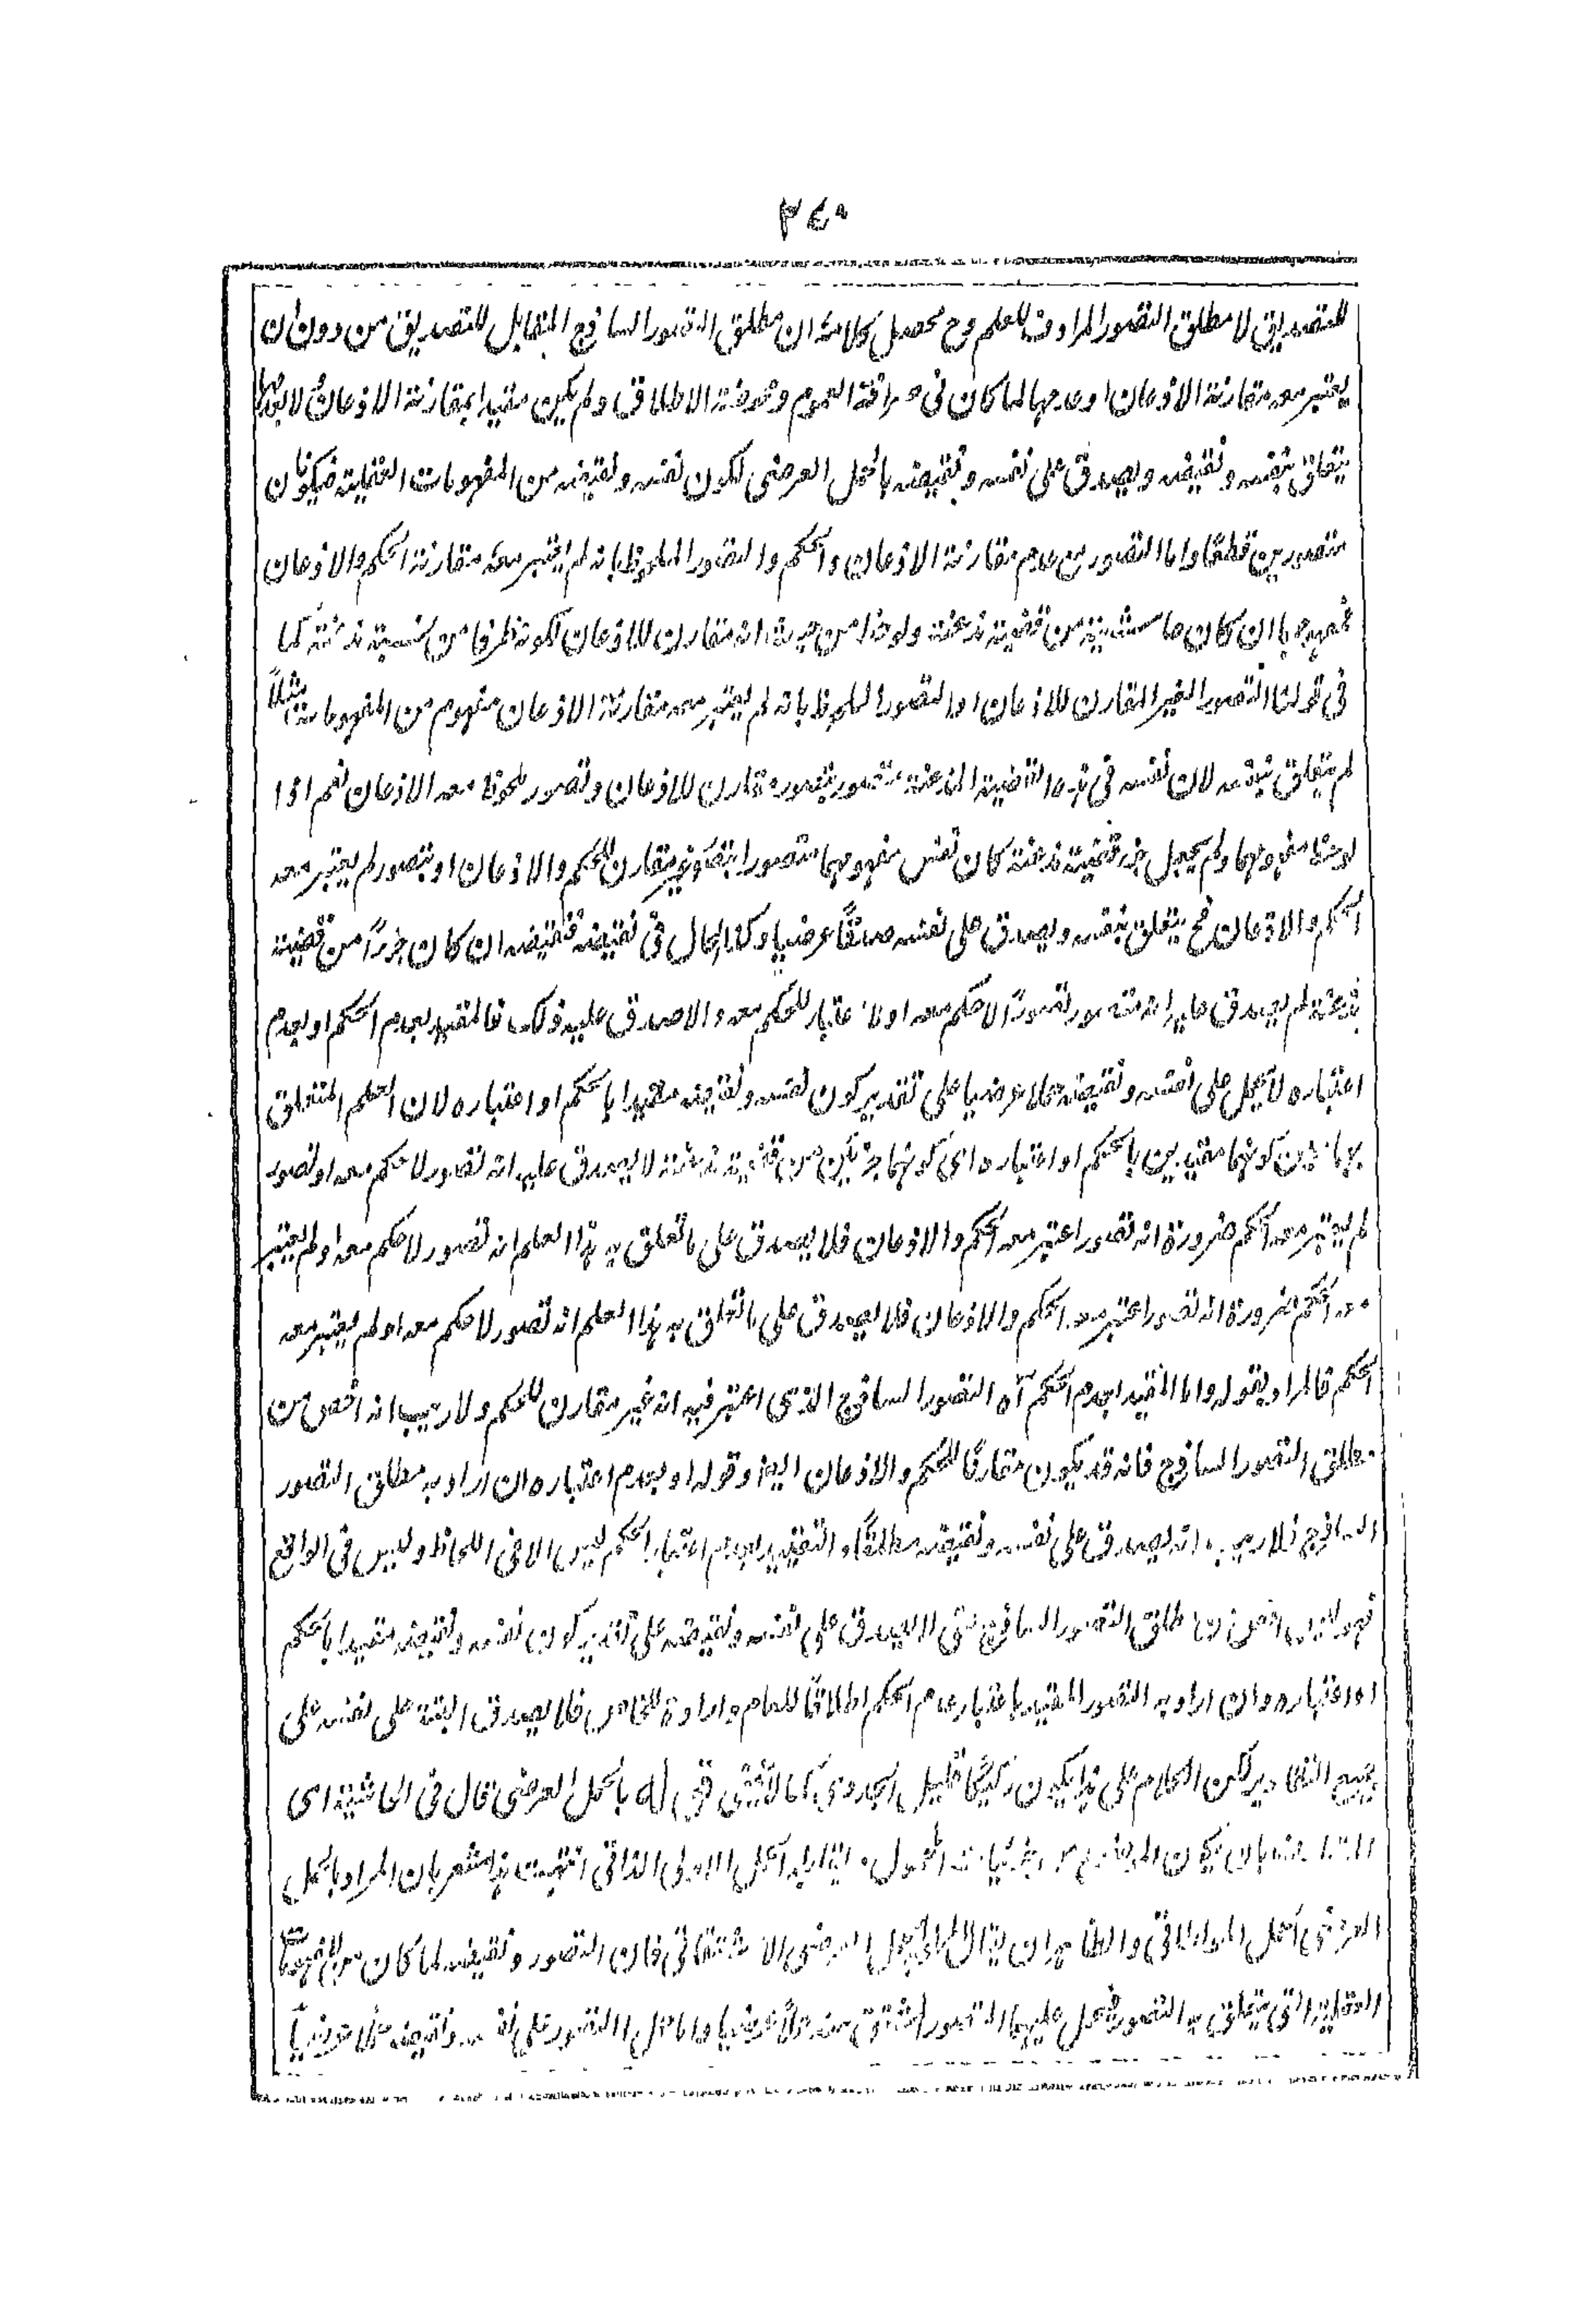 ٣٤٠
للتصديق لا مطلق التصور المرادف للعلم وح محصل كلامه ان مطلق التصور الساذج المقابل للتصديق من دون ان
يعتبر معه مقارنة الاذعان او عدمها لما كان في صرافة العموم ومحوضة الاطلاق ولم يكن مقيدا بمقارنة الاذعان لا بعدمها
يتعلق بنفسه ونقيضه ويصدق على نفسه ونقيضه بالحمل العرضي لكون نفسه ونقيضه من المفهومات العقلية فيكونان
متصورين قطعا واما التصور مع عدم مقارنة الاذعان والحكم والتصور الملحوظ بانه لم يعتبر معه مقارنة الحكم والاذعان
فمفهومهما ان كان حاشية من قضية مذعنة وماخوذا من حيث انه مقارن للاذعان لكونه طرفا من نسبة مذعنة كما
في قولنا التصور الغير المقارن للاذعان او التصور الملحوظ بانه لم يعتبر معه مقارنة الاذعان مفهوم من المفهومات مثلاً
لم يتعلق بنفسه لان نفسه في هذه القضية المذعنة متصور بتصور مقارن للاذعان وتصور ملحوظ معه الاذعان نعم اذا
لوحظ مفهومهما ولم يجعل جزء قضية مذعنة كان نفس مفهومهما متصورا بتصور غير مقارن للحكم والاذعان او بتصور لم يعتبر معه
الحكم والاذعان فح يتعلق بنفسه ويصدق على نفسه صدقًا عرضيا وكذا الحال في نقيضه فنقيضه ان كان جزءًا من قضية
مذعنة لم يصدق عليه انه متصور تصورًا لا حكم معه اولا اعتبار للحكم معه والا صدق عليه ذلك فالمقيد بعدم الحكم او بعدم
اعتباره لا يحمل على نفسه ونقيضه حملا عرضيا على تقدير كون نفسه ونقيضه مقيدا بالحكم او اعتباره لان العلم المتعلق
بهما حين كونهما مقيدين بالحكم او اعتباره اي كونهما جزئين من قضية مذعنة لا يصدق عليه انه تصور لا حكم معه او تصور
لم يعتبر معه الحكم ضرورة انه تصور اعتبر معه الحكم والاذعان فلا يصدق على ما تعلق به هذا العلم انه تصور لا حكم معه او لم يعتبر
معه الحكم ضرورة انه تصور اعتبر معه الحكم والاذعان فلا يصدق على ما تعلق به هذا العلم انه تصور لا حكم معه او لم يعتبر معه
الحكم فالمراد بقوله واما المقيد بعدم الحكم آه التصور الساذج الذي اعتبر فيه انه غير مقارن للحكم ولا ريب انه اخص من
مطلق التصور الساذج فانه قد يكون مقارنا للحكم والاذعان ايضا وقوله او بعدم اعتباره ان اراد به مطلق التصور
الساذج فلا ريب انه يصدق على نفسه ونقيضه مطلقًا والتقييد بعدم اعتبار الحكم ليس الا في اللحاظ وليس في الواقع
فهو ليس اخص من مطلق التصور الساذج حتى لا يصدق على نفسه ونقيضه على تقدير كون نفسه ونقيضه مقيدا بالحكم
او اعتباره وان اراد به التصور المقيد باعتبار عدم الحكم اطلاقًا للعام وارادة للخاص فلا يصدق البتة على نفسه على
جميع التقادير لكن الكلام على هذا يكون ركيكا قليل الجدوى كما لا يخفى قوله بالحمل العرضي قال في الحاشية اي
بان يكون الموضوع من جزئيات المحمول ويقابله الحمل الاولى الذاتي انتهت هذا مشعر بان المراد بالحمل
العرضي الحمل المواطاتي والظاهر ان يقال بالحمل العرضي الاشتقاقي فان التصور ونقيضه لما كان من المفهومات
العقلية التي يتعلق به التصور فيحمل عليهما التصور المشتق منه حملًا عرضيا واما حمل التصور على نفسه ونقيضه حملا عرضياً